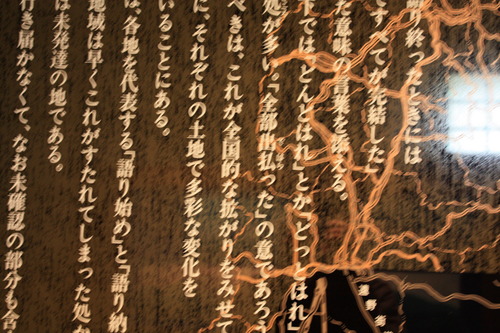 語り終ったときには
すべてが完結した」
た意味の言葉を添える。
では、「どんとはれ」とか「どっとはれ」
処が多い。「全部出払った」の意であろう
べきは、これが全国的な拡がりをみせて
に、それぞれの土地で多彩な変化を
いることにある。
は、各地を代表する「語り始め」と「語り納
地域は早くこれがすたれてしまった処か
は未発達の地である。
行き届かなくて、なお未確認の部分も含